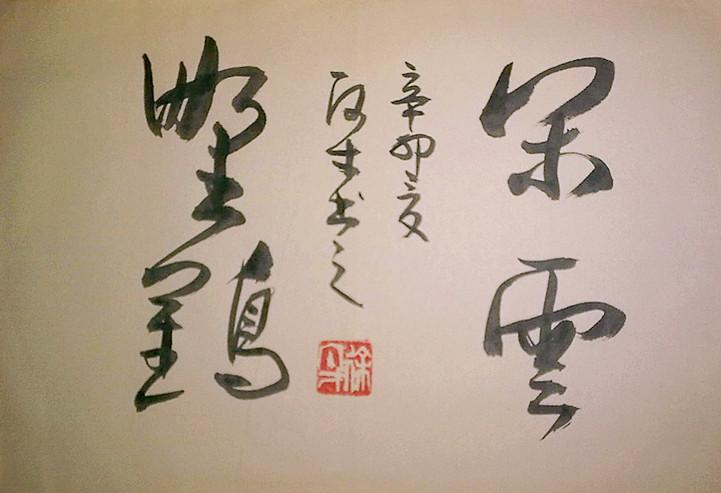 閑雲
野鶴
辛卯夏
書之